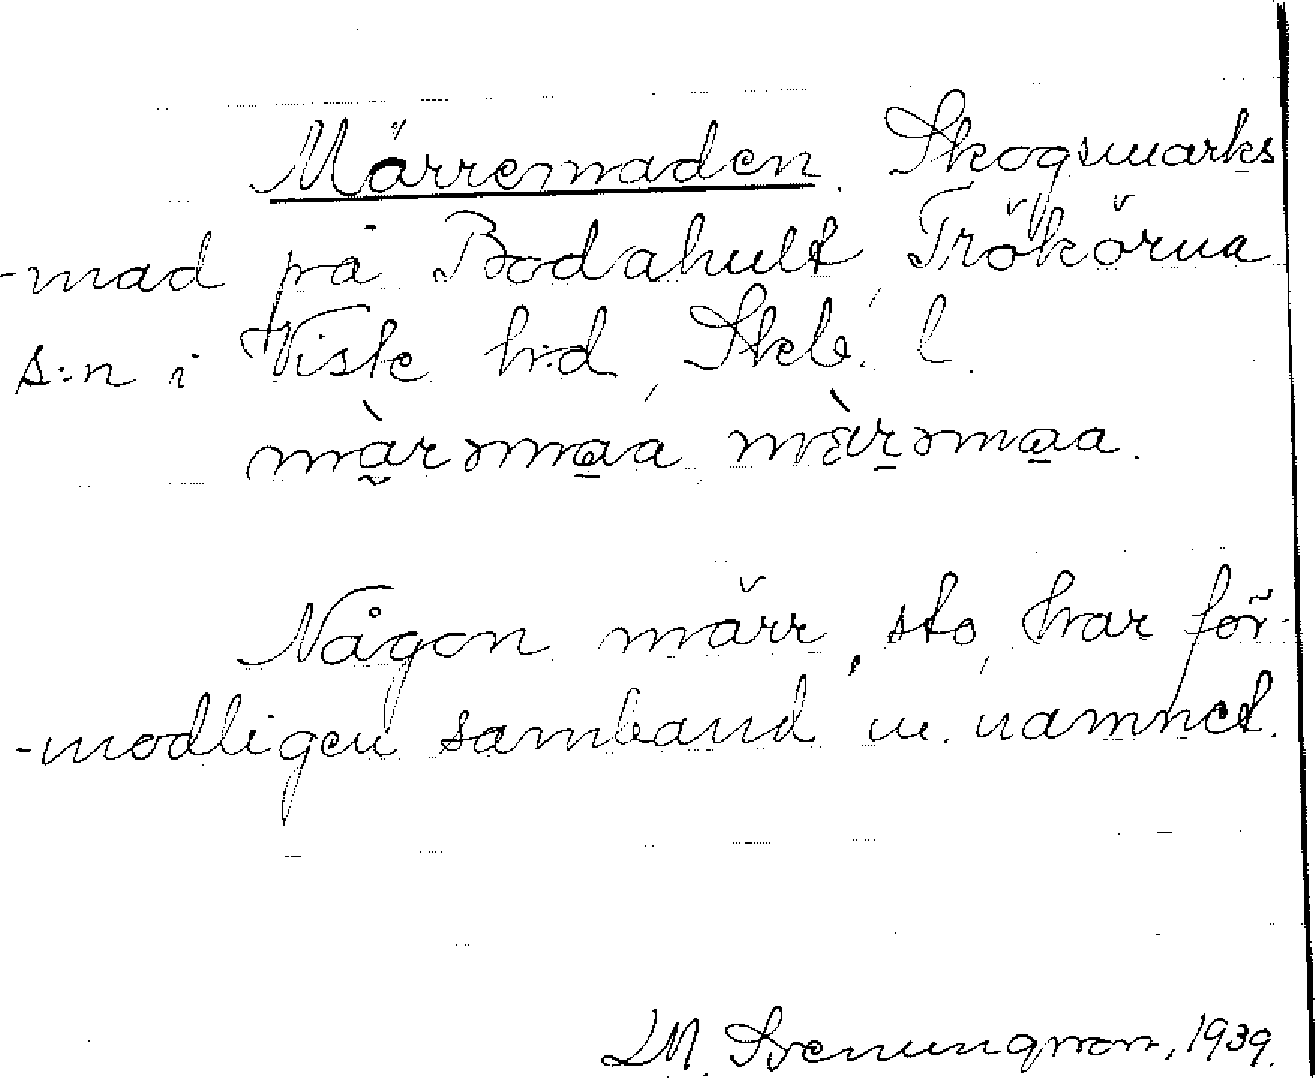 Märremaden. Skogsmarks
-mad på Bodahult, Trökörna
s:n i Viste h:d, Skb. l.
mä̀rəmaa, mä̀rəmaa.
Någon märr, sto, har för-
-modligen samband m. namnet.
LM. Svenungsson, 1939.